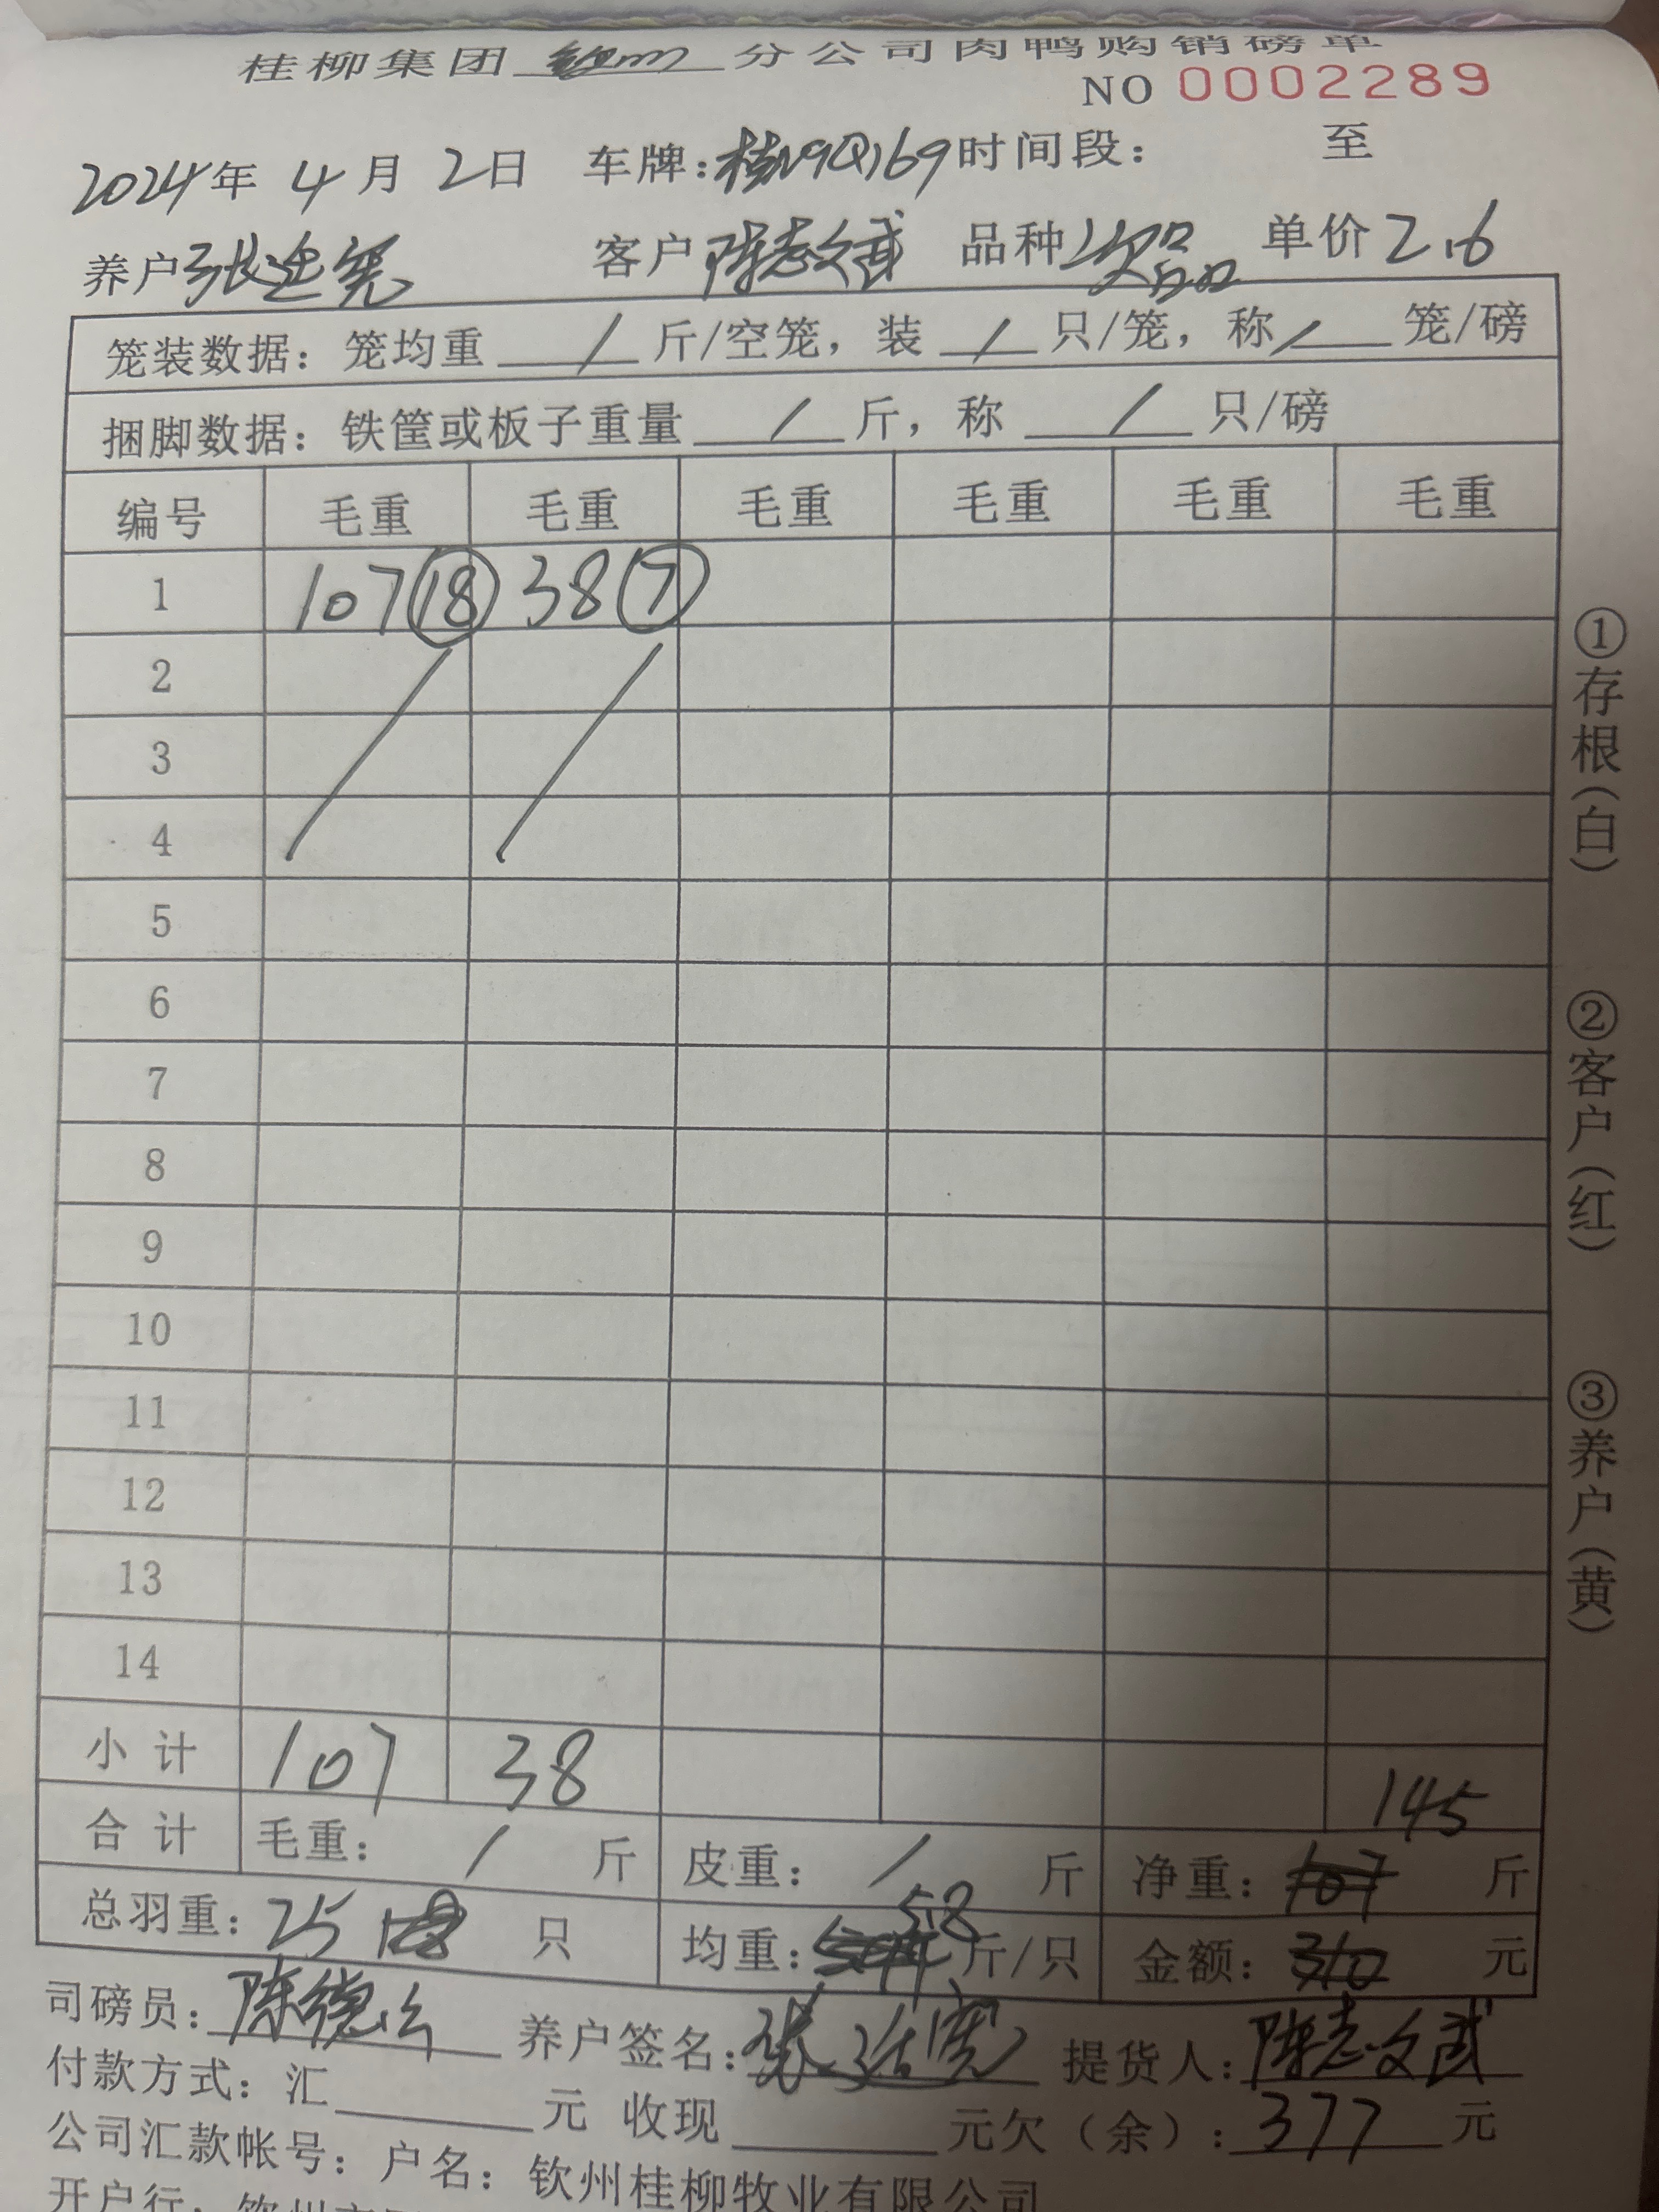 桂柳集团 分公司肉鸭购销磅单
NO 0002289
2024年 4月 2日 车牌:桂N9Q169 时间段: 至
养户 张 宪 客户 陈志武 品种 次品 单价 2.6
笼装数据: 笼均重 / 斤/空笼, 装 / 只/笼, 称 / 笼/磅
捆脚数据: 铁筐或板子重量 / 斤, 称 / 只/磅
编号 毛重 毛重 毛重 毛重 毛重 毛重
1 107 18 38 7
2
3
4
5
6
7
8
9
10
11
12
13
14
小计 107 38
145
合计 毛重: / 斤 皮重: / 斤 净重: 107 斤
总羽重: 25 只 均重: 5.8 斤/只 金额: 310 元
司磅员: 陈德 养户签名: 张 宪 提货人: 陈志武
付款方式: 汇 元 收现 元欠(余): 377 元
公司汇款帐号: 户名: 钦州桂柳牧业有限公司
开户行: 钦州
①存根(白)
②客户(红)
③养户(黄)